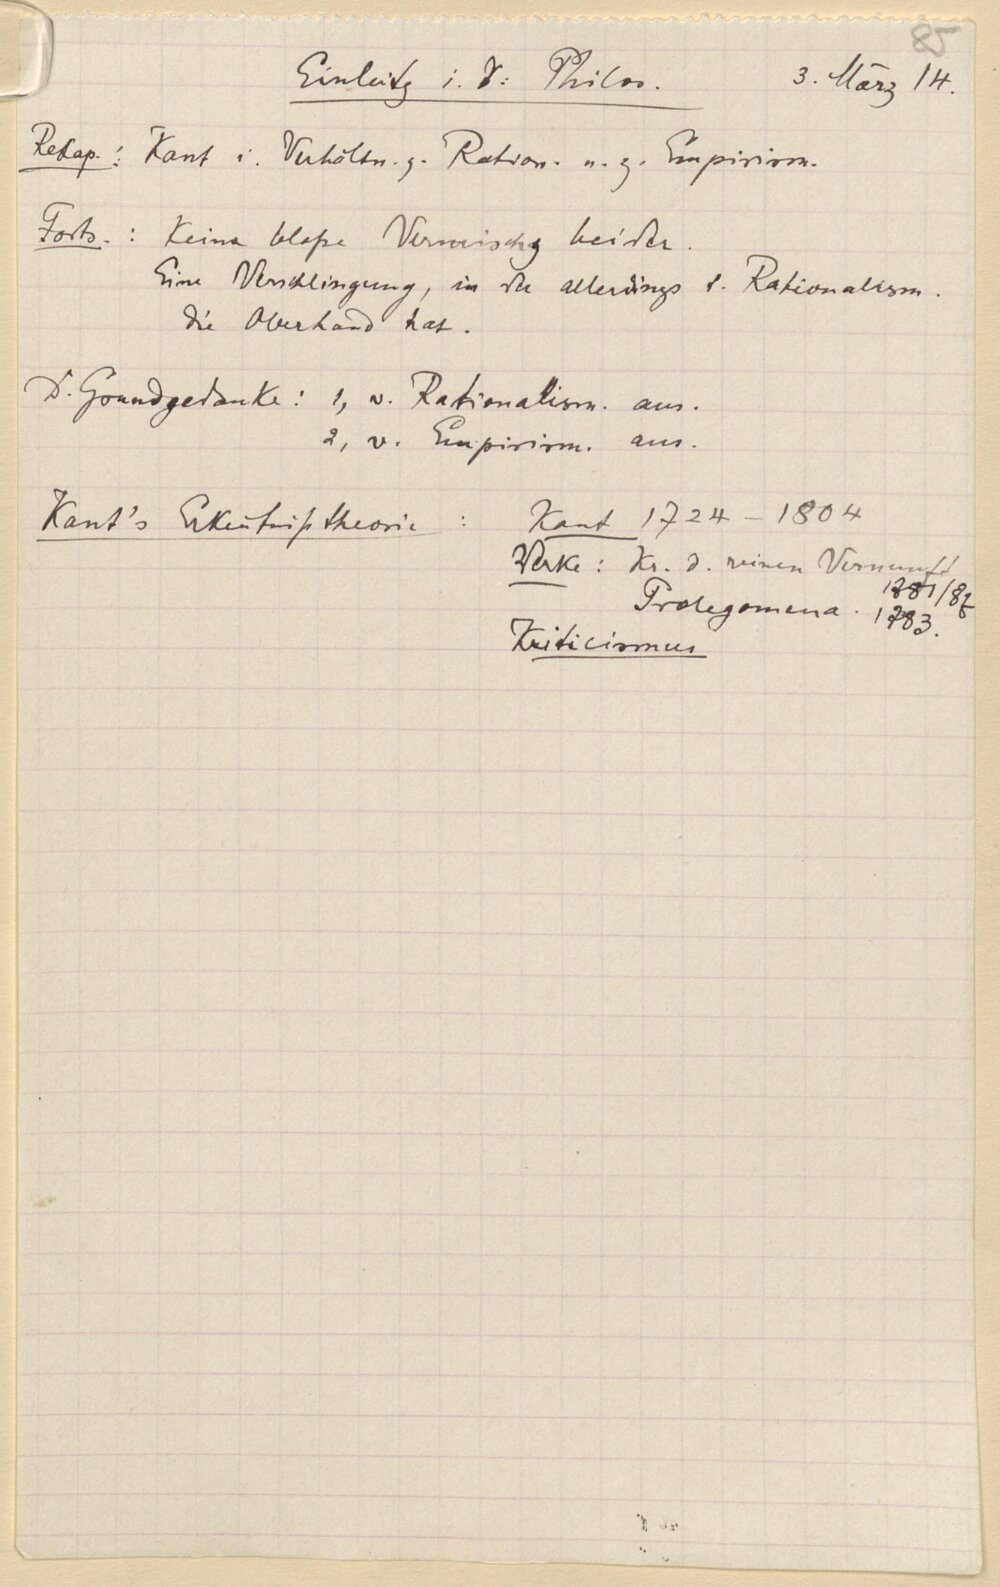 85
Einleitg i. d. Philos. 3. März 14.
Rekap.: Kant i. Verhältn. z. Ration. u. z. Empirism.
Forts.: Keine bloße Vermischg beider.
Eine Verschlingung, in der allerdings d. Rationalism.
die Oberhand hat.
D. Grundgedanke: 1, v. Rationalism. aus.
2, v. Empirism. aus.
Kant's Erkentnißtheorie : Kant 1724 – 1804
Werke: Kr. d. reinen Vernunft
1781/87
Prolegomena. 1783.
Kriticismus